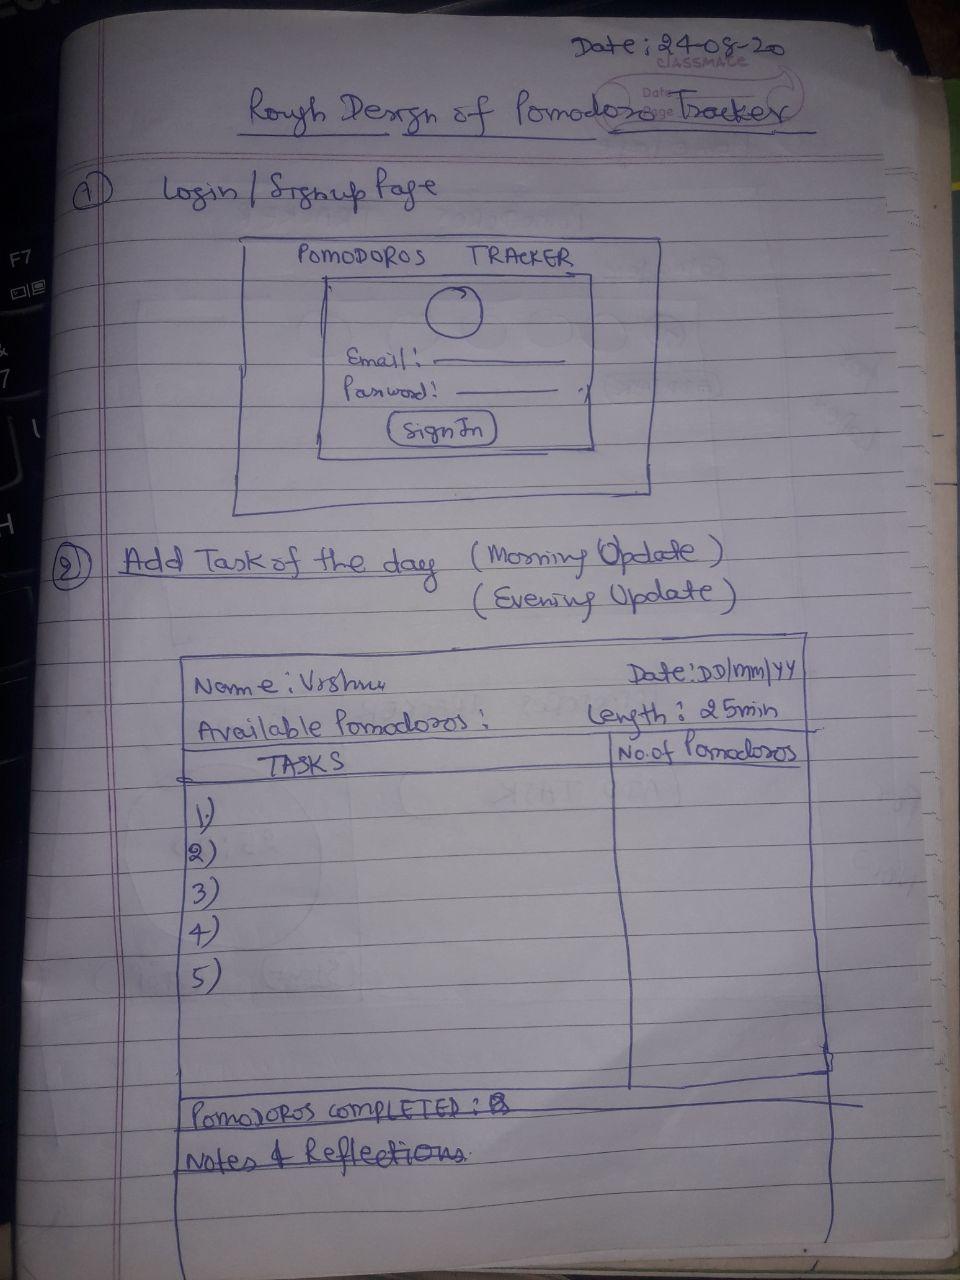 Date: 24-08-20
CLASSMATE
Date
Page
Rough Design of Pomodoro Tracker
1 Login / Signup Page
POMODOROS TRACKER
Email:
Password:
Sign In
2 Add Task of the day (Morning Update)
(Evening Update)
Name: Vishnu Date: DD/MM/YY
Available Pomodoros: Length: 25min
TASKS No. of Pomodoros
1)
2)
3)
4)
5)
POMODOROS COMPLETED: 8
Notes & Reflections.
F7
7
H